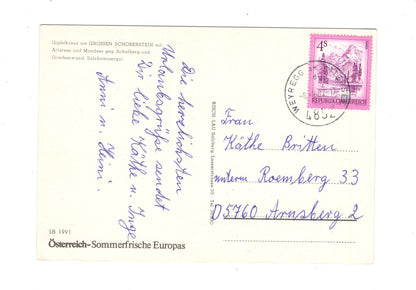 Gipfelkreuz am GROSSEN SCHOBERSTEIN mit
Attersee und Mondsee geg. Schafberg und
Drachenwand, Salzkammergut
Die herzlichsten
Urlaubsgrüße sendet
Dir liebe Käthe u. Inge
Anni u. Heini.
LB 1991
Österreich-Sommerfrische Europas
4S
REPUBLIK ÖSTERREICH
WEYREGG
4852
Frau
Käthe Britten
unterm Roemberg 33
D5760 Arnsberg 2